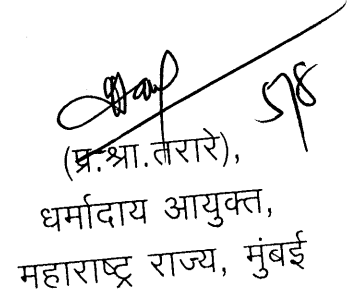 5/8
(प्र.श्रा.तरारे),
धर्मादाय आयुक्त,
महाराष्ट्र राज्य, मुंबई